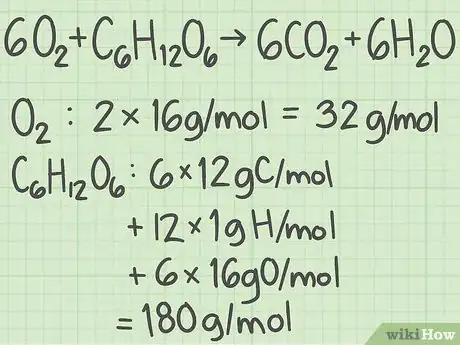 6O₂+C₆H₁₂O₆→6CO₂+6H₂O
O₂ : 2 × 16g/mol = 32 g/mol
C₆H₁₂O₆: 6×12gC/mol
+ 12 × 1g H/mol
+ 6 × 16gO/mol
= 180 g/mol
wikiHow